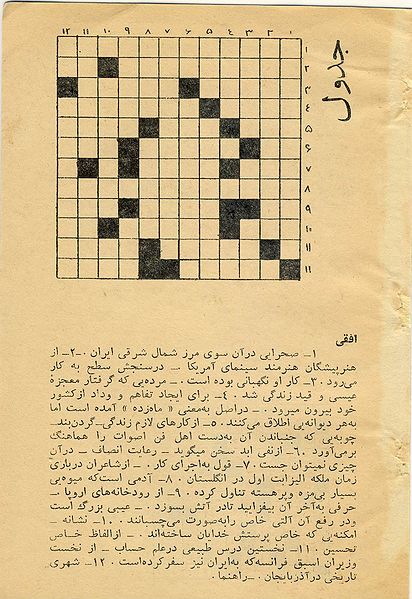 جدول
۱۲ ۱۱ ۱۰ ۹ ۸ ۷ ۶ ۵ ۴ ۳ ۲ ۱
۱
۲
۳
۴
۵
۶
۷
۸
۹
۱۰
۱۱
۱۱
افقی
۱ـ صحرایی درآن سوی مرز شمال شرقی ایران ۰ ـ۲ـ از
هنرپیشگان هنرمند سینمای آمریکا ـ درسنجش سطح به کار
می‌رود ۳۰ـ کار او نگهبانی بوده است ۰ ـ مرده‌یی که گرفتار معجزهٔ
عیسی و قید زندگی شد ۴۰ـ برای ایجاد تفاهم و وداد ازکشور
خود بیرون میرود ۰ ـ دراصل به‌معنی « ماه‌زده » آمده است اما
به‌هر دیوانه‌یی اطلاق می‌کنند ۵۰ـ ازکارهای لازم زندگی ـ گردن‌بند ـ
چوبه‌یی که جنباندن آن به‌دست اهل فن اصوات را هماهنگ
برمی‌آورد ۶۰ـ ازنفی ابد سخن میگوید ـ رعایت انصاف ـ درآن
چیزی نمیتوان جست ۷۰ـ قول به‌اجرای کار ۰ ـ ازشاعران درباری
زمان ملکه الیزابت اول در انگلستان ۸۰ـ آدمی‌است که میوه‌یی
بسیار بی‌مزه وپرهسته تناول کرده ۹۰ـ از رودخانه‌های اروپا ـ
حرفی به‌آخر آن بیفزایید تادر آتش بسوزد ۰ ـ عیبی بزرگ است
ودر رفع آن آلتی خاص رابه‌صورت می‌چسبانند ۱۰۰ـ نشانه ـ
امکنه‌یی که خاص پرستش خدایان ساخته‌اند ۰ ـ ازالفاظ خاص
تحسین ۱۱۰ـ نخستین درس طبیعی درعلم حساب ـ از نخست
وزیران اسبق فرانسه‌که به‌ایران نیز سفرکرده‌است ۱۲۰ـ شهری
تاریخی درآذربایجان ۰ ـ راهنما ۰